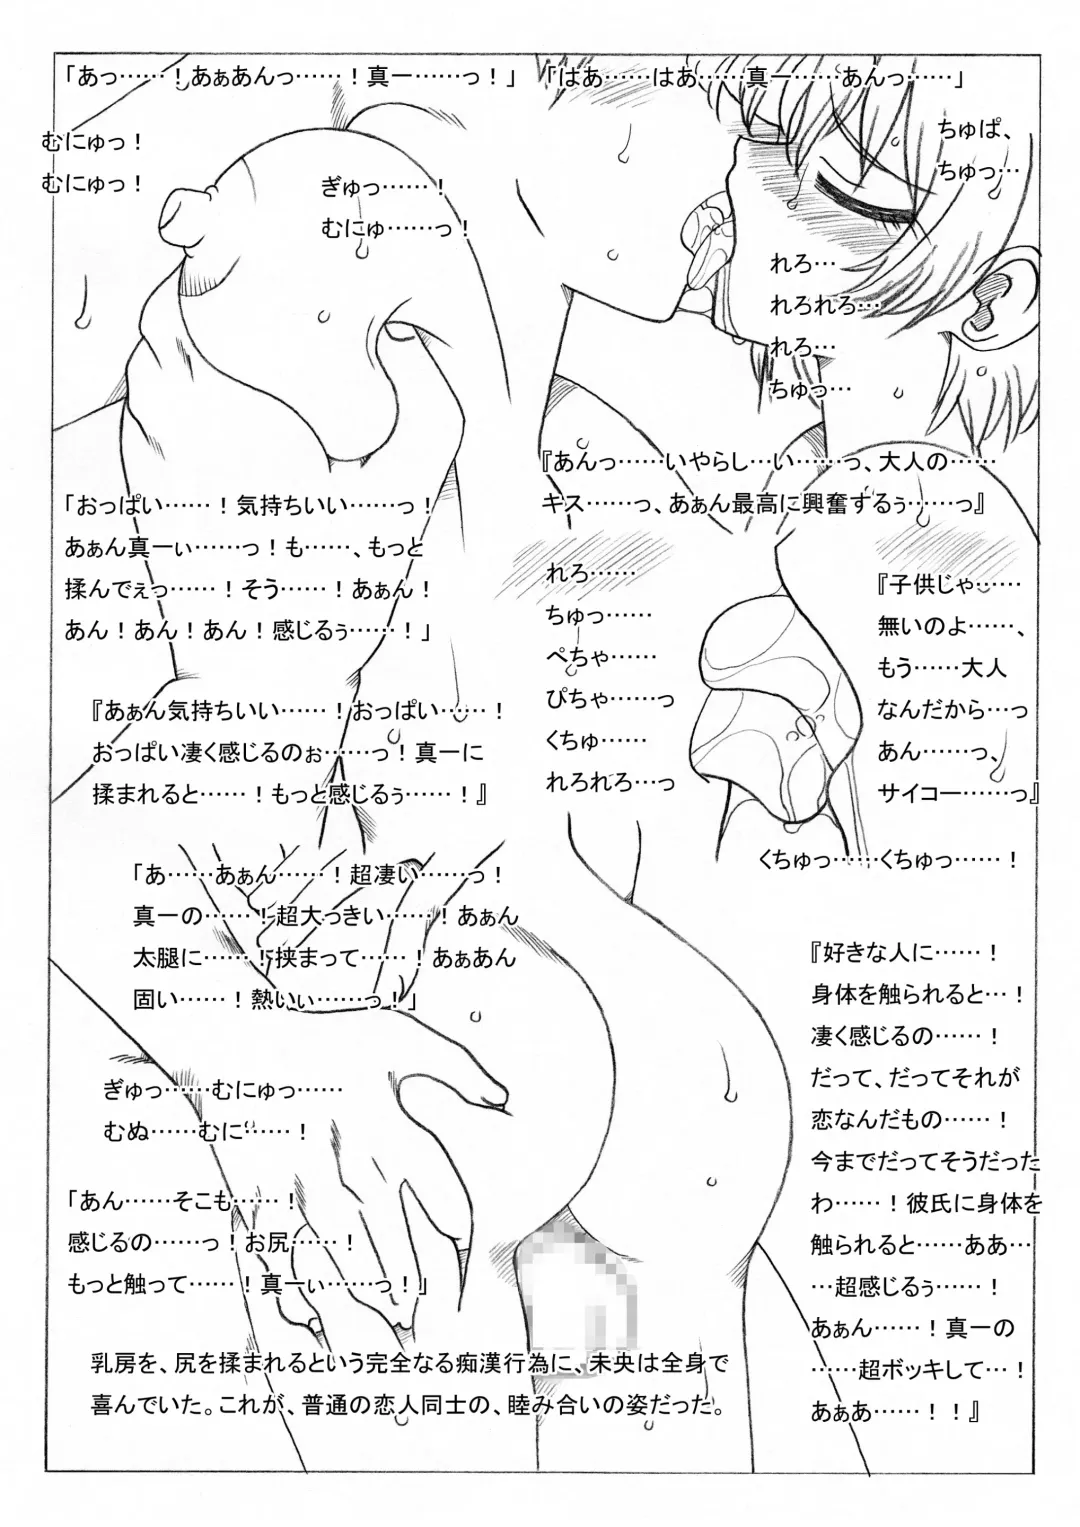 「あっ……！あぁあんっ……！真一……っ！」
「はあ……はあ……真一……あんっ……」
むにゅっ！
むにゅっ！
ぎゅっ……！
むにゅ……っ！
ちゅぱ、
ちゅっ…
れろ…
れろれろ…
れろ…
ちゅっ…
『あんっ……いやらし…い……っ、大人の……
キス……っ、あぁん最高に興奮するぅ……っ』
「おっぱい……！気持ちいい……っ！
あぁん真一ぃ……っ！も……、もっと
揉んでぇっ……！そう……！あぁん！
あん！あん！あん！感じるぅ……！」
れろ……
ちゅっ…
ぺちゃ……
ぴちゃ……っ
くちゅ……
れろれろ…っ
『子供じゃ……
無いのよ……、
もう……大人
なんだから…っ
あん……っ、
サイコー……っ』
『あぁん気持ちいい……！おっぱい……！
おっぱい凄く感じるのぉ……っ！真一に
揉まれると……！もっと感じるぅ……！』
くちゅっ……くちゅっ……！
「あ……あぁん……！超凄い……っ！
真一の……！超大っきい……！あぁん
太腿に……！挟まって……！あぁあん
固い……！熱いぃ……っ！」
『好きな人に……！
身体を触られると…！
凄く感じるの……！
だって、だってそれが
恋なんだもの……！
今までだってそうだった
わ……！彼氏に身体を
触られると……ああ…
…超感じるぅ……！
あぁん……！真一の
……超ボッキして…！
あぁあ……！！』
ぎゅっ……むにゅっ……
むぬ……むに……！
「あん……そこも……！
感じるの……っ！お尻……！
もっと触って……！真一ぃ……っ！」
乳房を、尻を揉まれるという完全なる痴漢行為に、未央は全身で
喜んでいた。これが、普通の恋人同士の、睦み合いの姿だった。